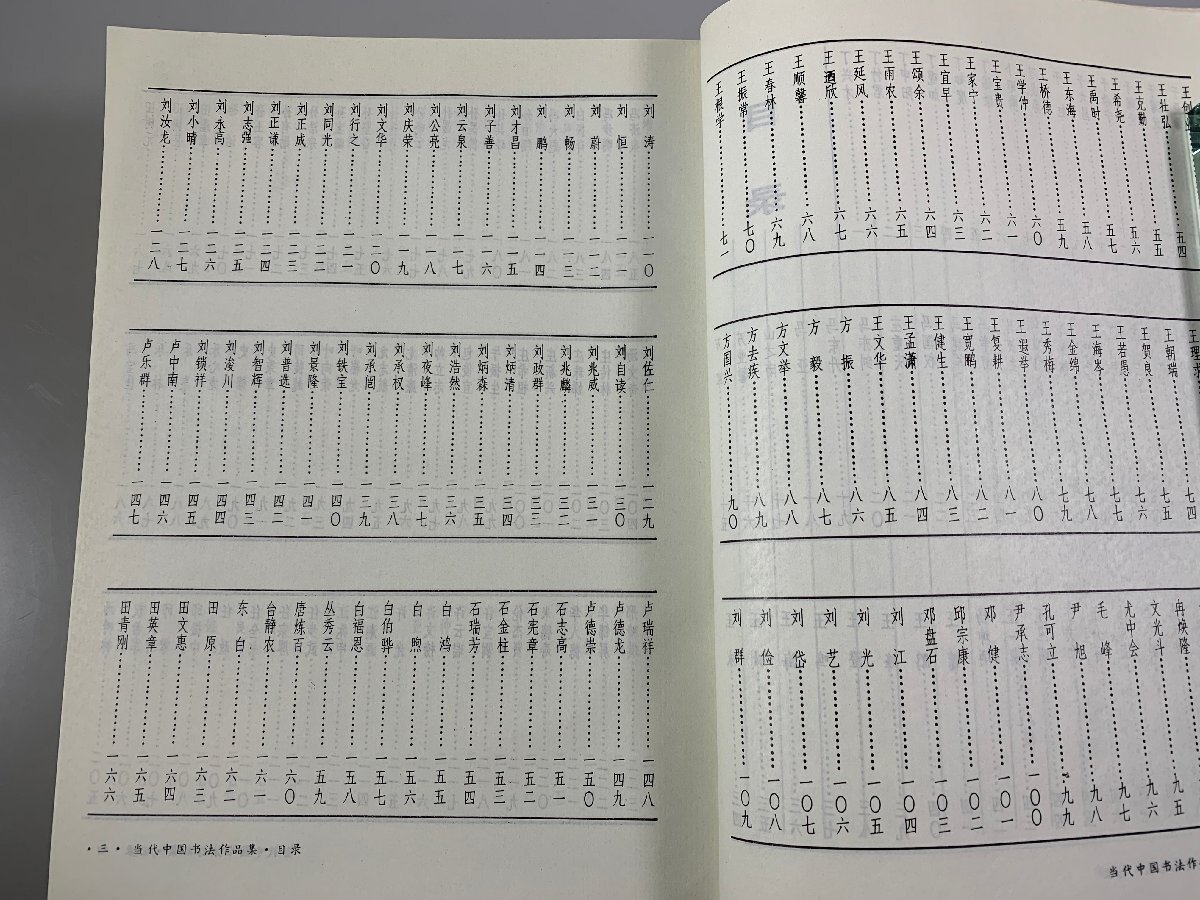 王壮弘……五四
王克勤……五五
王希尧……五六
王禹时……五七
王东海……五八
王桥德……五九
王学仲……六〇
王宝贵……六一
王家宁……六二
王宜早……六三
王颂余……六四
王雨农……六五
王延风……六六
王迺欣……六七
王顺馨……六八
王春林……六九
王振常……七〇
王根学……七一
王朝瑞……七四
王贺良……七五
王若愚……七六
王海岑……七七
王金绵……七八
王秀梅……七九
王遐举……八〇
王复耕……八一
王宽鹏……八二
王健生……八三
王孟潇……八四
王文华……八五
方 振……八六
方 毅……八七
方文举……八八
方去疾……八九
方国兴……九〇
冉焕隆
文光斗……九五
尤中会……九六
毛 峰……九七
尹 旭……九八
孔可立……九九
尹承志……一〇〇
邓 健……一〇一
邱宗康……一〇二
邓盘石……一〇三
刘 江……一〇四
刘 光……一〇五
刘 艺……一〇六
刘 岱……一〇七
刘 俭……一〇八
刘 群……一〇九
当代中国书法作
刘 涛……一一〇
刘 恒……一一一
刘 蔚……一一二
刘 畅……一一三
刘 鹏……一一四
刘才昌……一一五
刘子善……一一六
刘云泉……一一七
刘公亮……一一八
刘庆荣……一一九
刘文华……一二〇
刘行之……一二一
刘同光……一二二
刘正成……一二三
刘正谦……一二四
刘志强……一二五
刘永高……一二六
刘小晴……一二七
刘汝龙……一二八
刘佐仁……一二九
刘自读……一三〇
刘兆威……一三一
刘兆麟……一三二
刘政群……一三三
刘炳清……一三四
刘炳森……一三五
刘浩然……一三六
刘夜峰……一三七
刘承权……一三八
刘承闿……一三九
刘轶宝……一四〇
刘景隆……一四一
刘普选……一四二
刘智辉……一四三
刘浚川……一四四
刘锁祥……一四五
卢中南……一四六
卢乐群……一四七
卢瑞祥……一四八
卢德龙……一四九
卢德崇……一五〇
石志高……一五一
石宪章……一五二
石金柱……一五三
石瑞芳……一五四
白 鸿……一五五
白 煦……一五六
白伯骅……一五七
白福恩……一五八
丛秀云……一五九
唐炼百……一六〇
台静农……一六一
东 白……一六二
田 原……一六三
田文惠……一六四
田英章……一六五
田青刚……一六六
·三·当代中国书法作品集·目录